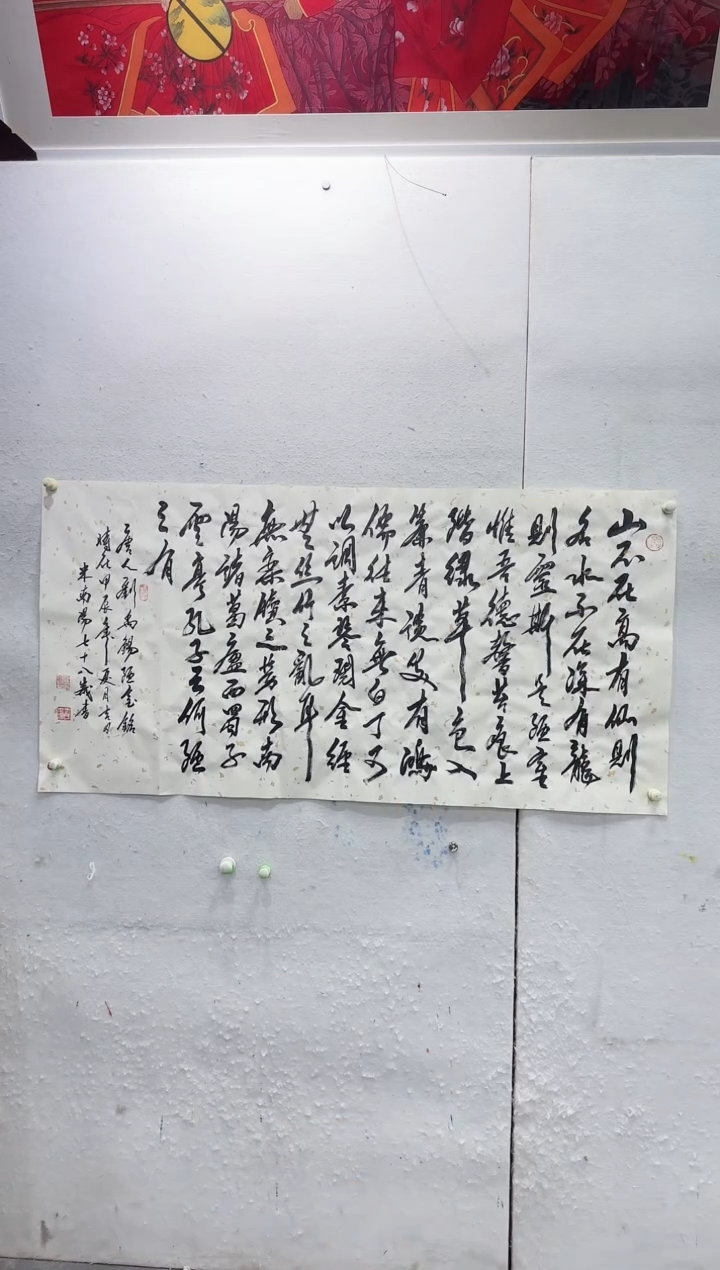 山不在高有仙則
名水不在深有龍
則靈斯是陋室
惟吾德馨苔痕上
階緑草色入
簾青談笑有鴻
儒往来無白丁可
以調素琴閱金經
無絲竹之亂耳
無案牘之勞形南
陽諸葛廬西蜀子
雲亭孔子云何陋
之有
唐人劉禹錫陋室銘
時在甲辰年夏月吉日
米南陽七十八歲書